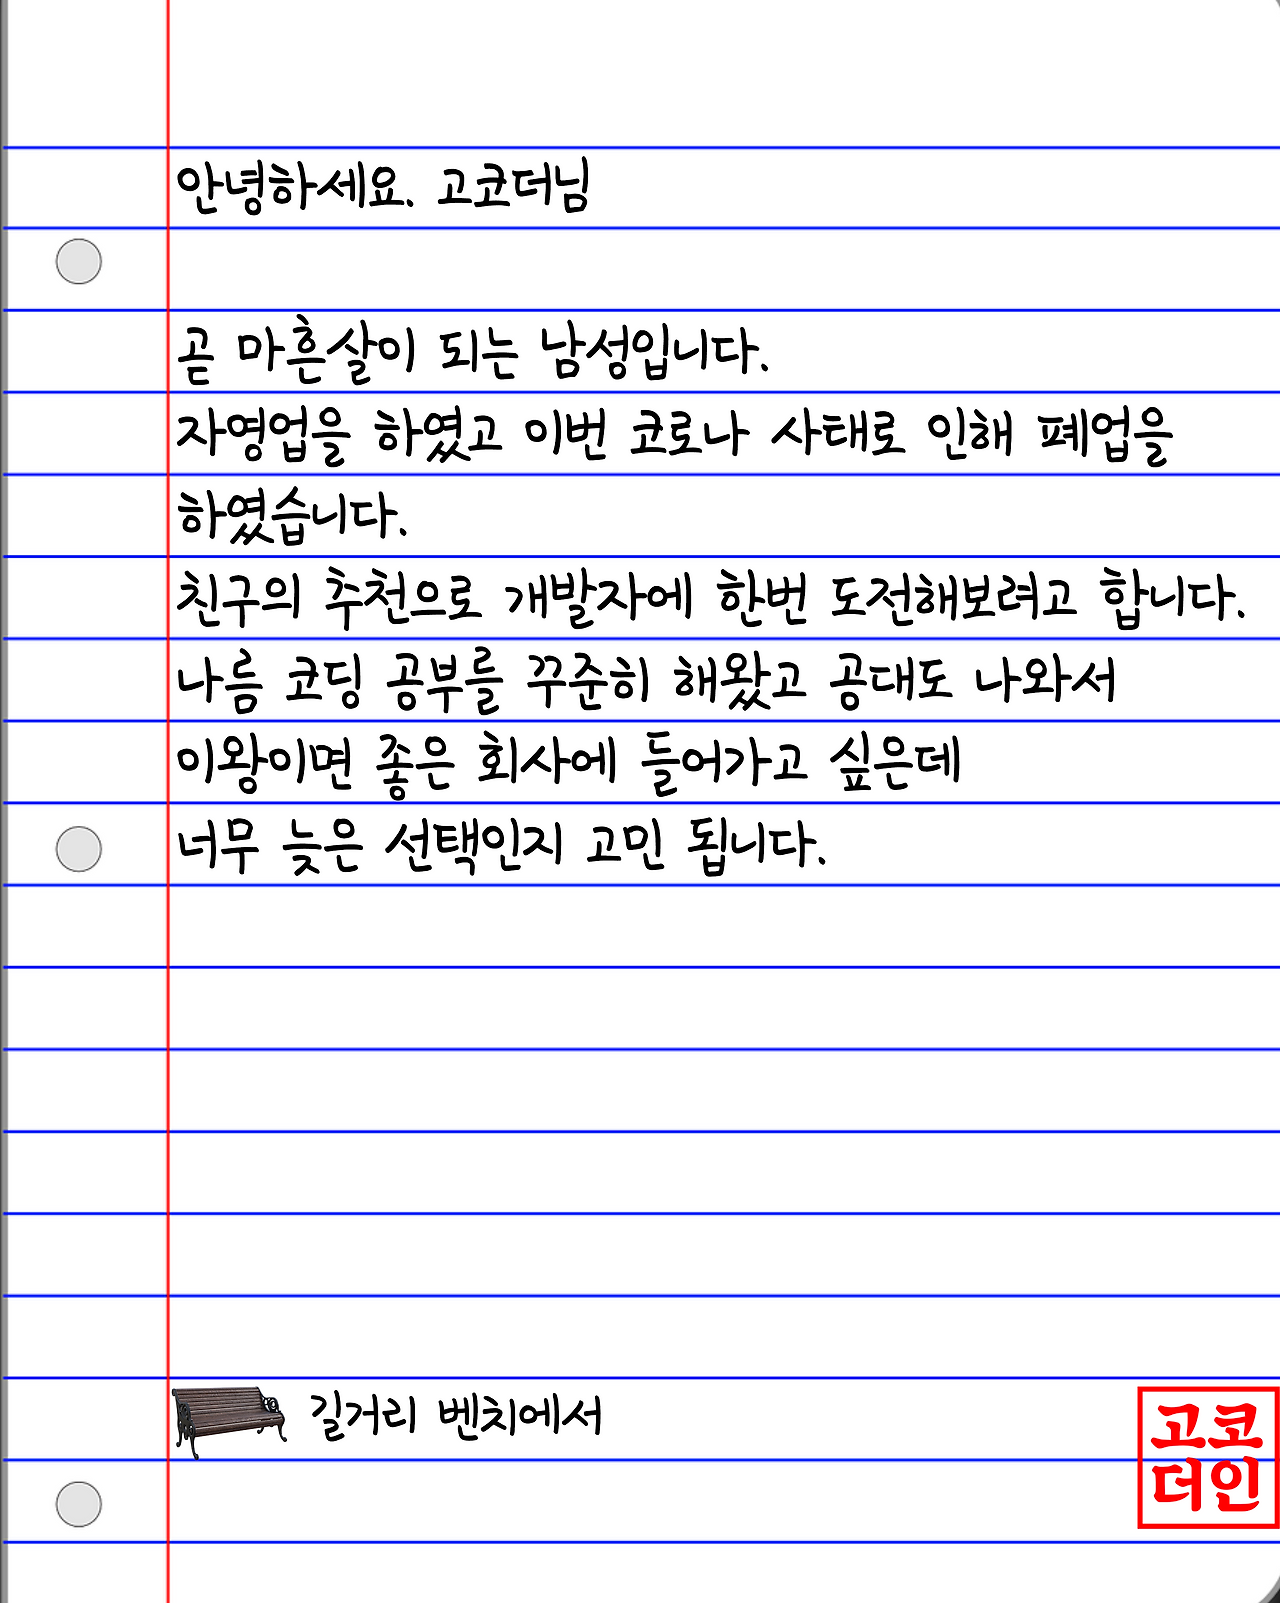 안녕하세요. 고코더님
곧 마흔살이 되는 남성입니다.
자영업을 하였고 이번 코로나 사태로 인해 폐업을
하였습니다.
친구의 추천으로 개발자에 한번 도전해보려고 합니다.
나름 코딩 공부를 꾸준히 해왔고 공대도 나와서
이왕이면 좋은 회사에 들어가고 싶은데
너무 늦은 선택인지 고민 됩니다.
길거리 벤치에서
고코
더인